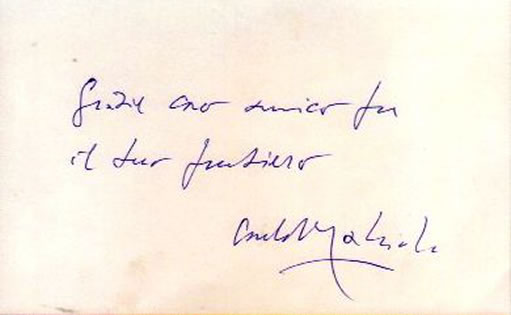 Grazie caro amico per
il tuo pensiero
Carlo